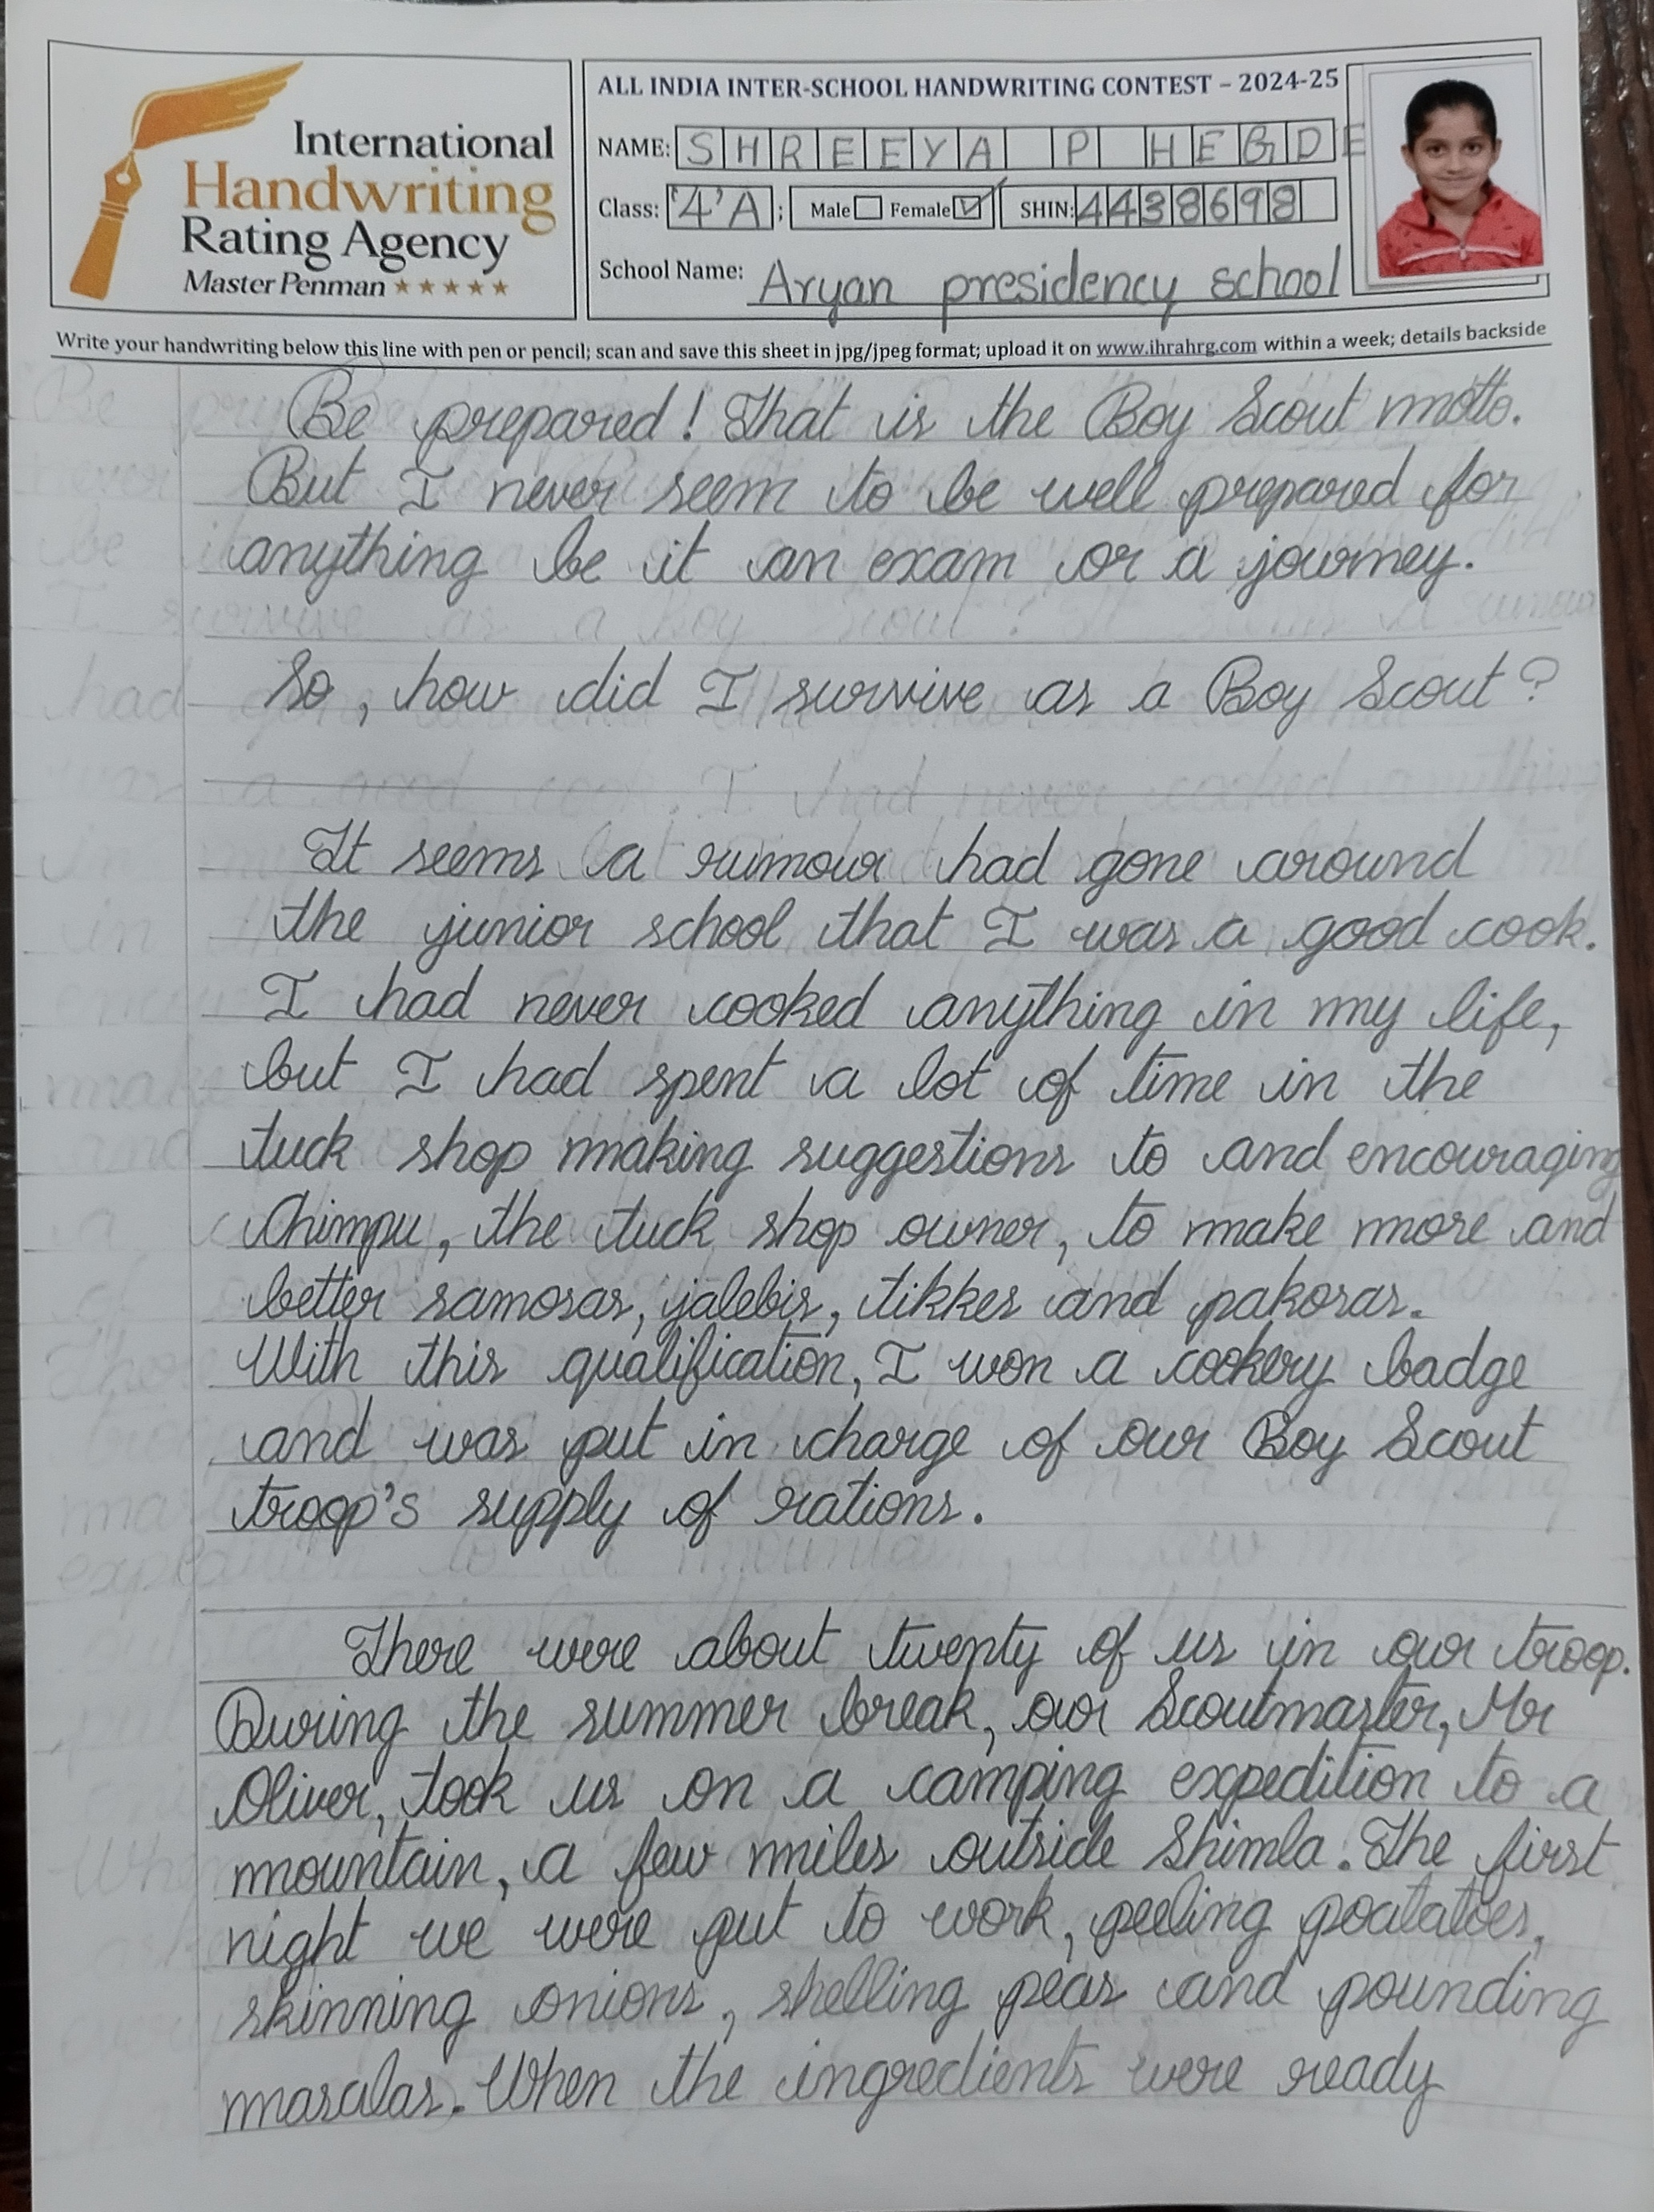 International
Handwriting
Rating Agency
Master Penman ★★★★★
ALL INDIA INTER-SCHOOL HANDWRITING CONTEST – 2024-25
NAME: SHREEYA P HEGDE
Class: '4'A ; Male Female SHIN: 4438698
School Name: Aryan presidency school
Write your handwriting below this line with pen or pencil; scan and save this sheet in jpg/jpeg format; upload it on www.ihrahrg.com within a week; details backside
Be prepared! That is the Boy Scout motto.
But I never seem to be well prepared for
anything be it an exam or a journey.
So, how did I survive as a Boy Scout?
It seems a rumour had gone around
the junior school that I was a good cook.
I had never cooked anything in my life,
but I had spent a lot of time in the
tuck shop making suggestions to and encouraging
Chimpu, the tuck shop owner, to make more and
better samosas, jalebis, tikkes and pakoras.
With this qualification, I won a cookery badge
and was put in charge of our Boy Scout
troop's supply of rations.
There were about twenty of us in our troop.
During the summer break, our Scoutmaster, Mr
Oliver, took us on a camping expedition to a
mountain, a few miles outside Shimla. The first
night we were put to work, peeling poatatoes,
skinning onions, shelling peas and pounding
masalas. When the ingredients were ready